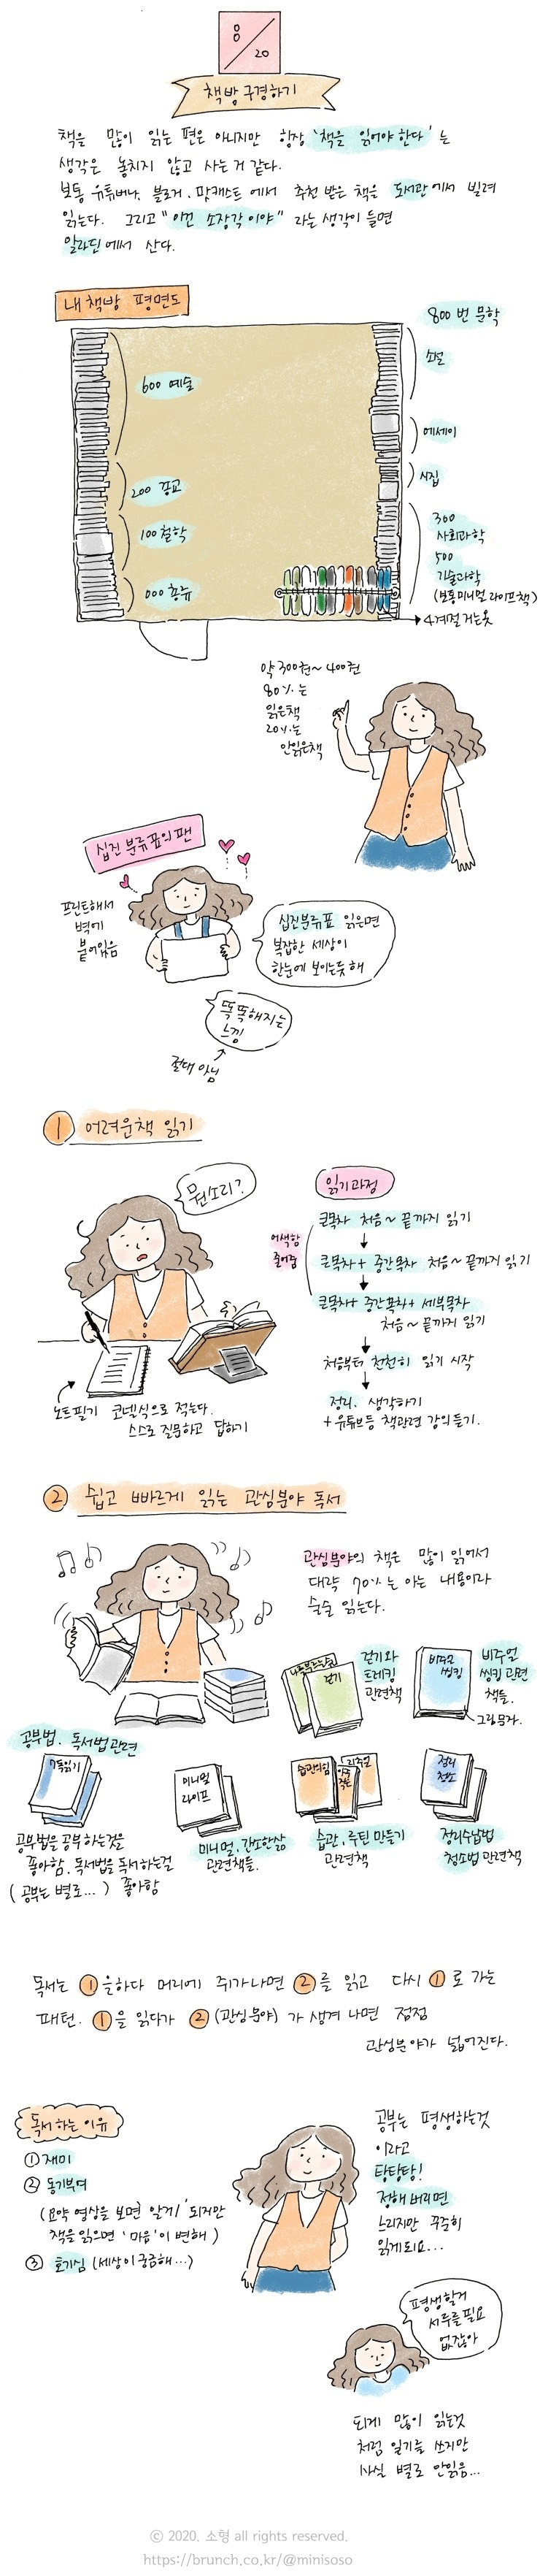 8/20
책방 구경하기
책을 많이 읽는 편은 아니지만 항상 '책을 읽어야 한다' 는
생각은 놓치지 않고 사는 거 같다.
보통 유튜버나, 블로거, 팟캐스트 에서 추천 받은 책을 도서관에서 빌려
읽는다. 그리고 "이건 소장각이야" 라는 생각이 들면
알라딘에서 산다.
내 책방 평면도
800번 문학
소설
600 예술
에세이
시집
200 종교
100 철학
300
사회과학
500
기술과학
(보통 미니멀 라이프책)
000 총류
4계절 거는 옷
약 300권~400권
80%는
읽은책
20%는
안읽은책
십진 분류표의 팬
프린트해서
벽에
붙어있음
십진분류표 읽으면
복잡한 세상이
한눈에 보이는듯 해
똑똑해지는
느낌
절대 아님
1 어려운책 읽기
뭔소리?
읽기과정
큰목차 처음~끝까지 읽기
어색함
줄여줌
큰목차+ 중간목차 처음~끝까지 읽기
큰목차+ 중간목차+ 세부목차
처음~끝까지 읽기
처음부터 천천히 읽기 시작
정리. 생각하기
+ 유튜브등 책관련 강의듣기.
노트필기 코넬식으로 적는다.
스스로 질문하고 답하기
2 쉽고 빠르게 읽는 관심분야 독서
관심분야의 책은 많이 읽어서
대략 70%는 아는 내용이라
술술 읽는다.
걷기
걷기와
트레킹
관련책
비주얼
씽킹
비주얼
씽킹 관련
책들.
그림문자.
공부법. 독서법 관련
7독읽기
미니멀
라이프
습관의힘
아주
작은
리추얼
정리
청소
공부법을 공부하는걸
좋아함. 독서법을 독서하는걸
(공부는 별로...) 좋아함
미니멀, 간소한삶
관련책들.
습관, 루틴 만들기
관련책
정리수납법
청소법 관련책
독서는 1 을하다 머리에 쥐가나면 2 를 읽고 다시 1 로 가는
패턴. 1 을 읽다가 2 (관심분야) 가 생겨 나면 점점
관심분야가 넓어진다.
독서 하는 이유
① 재미
② 동기부여
(요약 영상을 보면 '알게' 되지만
책을 읽으면 '마음'이 변해)
③ 호기심 (세상이 궁금해...)
공부는 평생하는것
이라고
탕탕탕!
정해 버리면
느리지만 꾸준히
읽게되요...
평생할거
서두를 필요
없잖아
되게 많이 읽는것
처럼 일기를 쓰지만
사실 별로 안읽음...
ⓒ 2020. 소형 all rights reserved.
https://brunch.co.kr/@minisoso